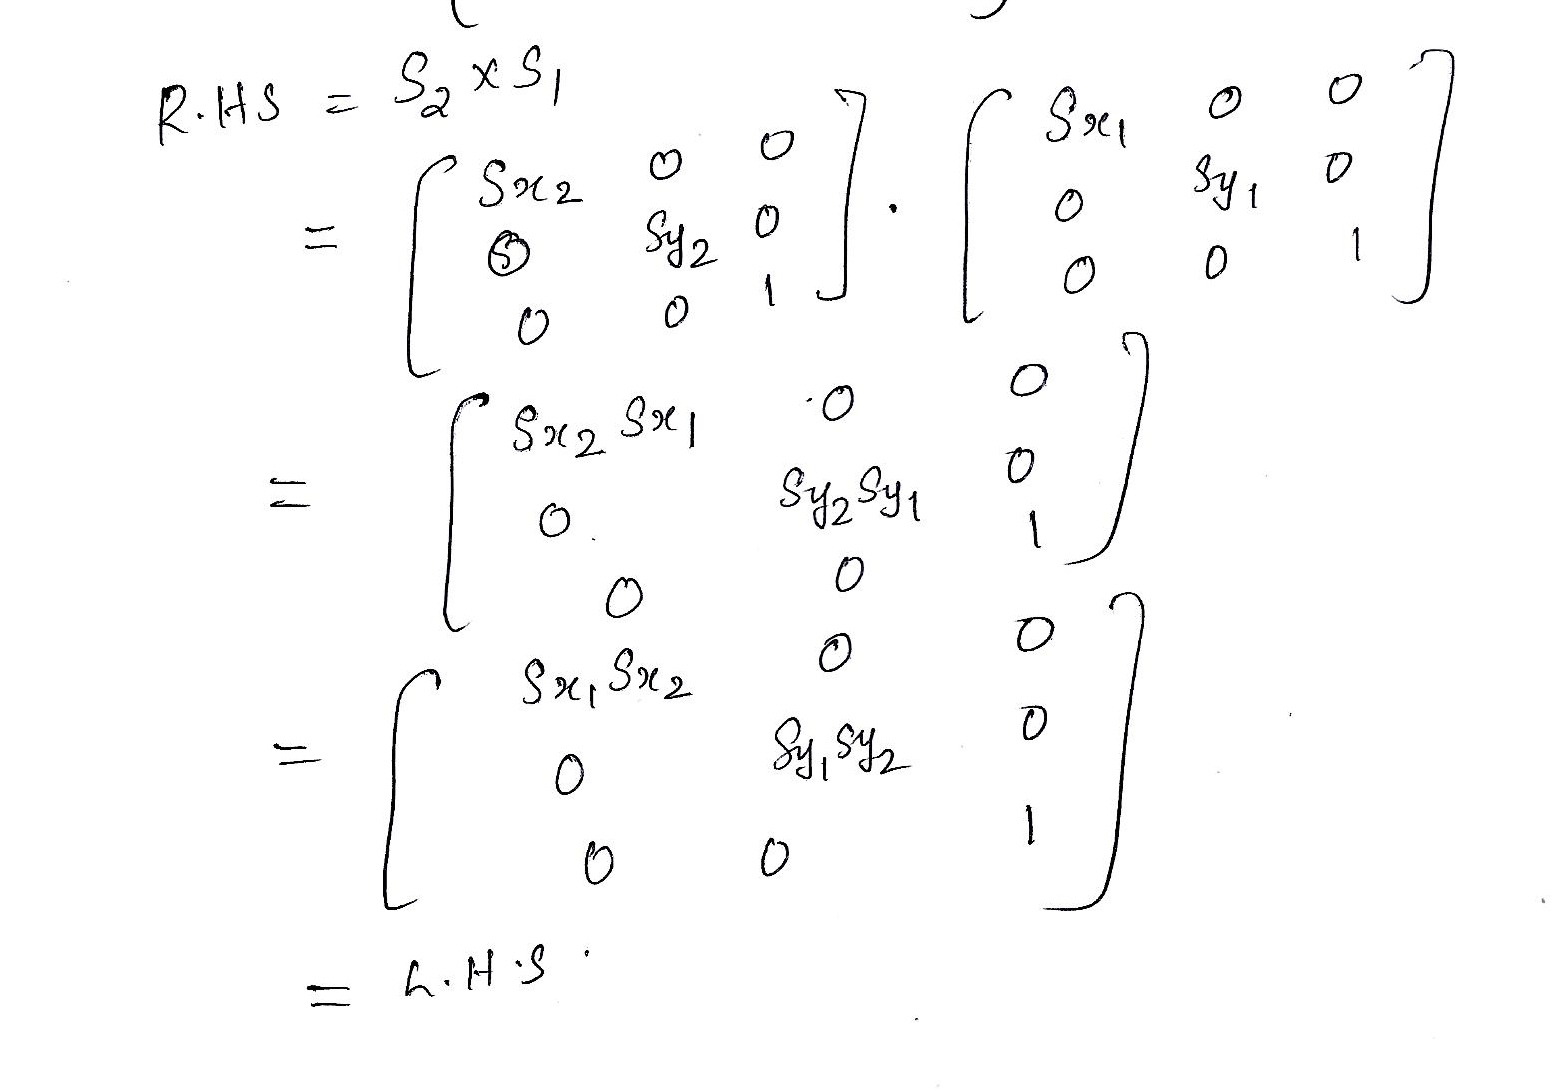 R.HS = S2 x S1
= [ Sx2 0 0
0 Sy2 0
0 0 1 ] . [ Sx1 0 0
0 Sy1 0
0 0 1 ]
= [ Sx2 Sx1 0 0
0 Sy2 Sy1 0
0 0 1 ]
= [ Sx1 Sx2 0 0
0 Sy1 Sy2 0
0 0 1 ]
= L.H.S.